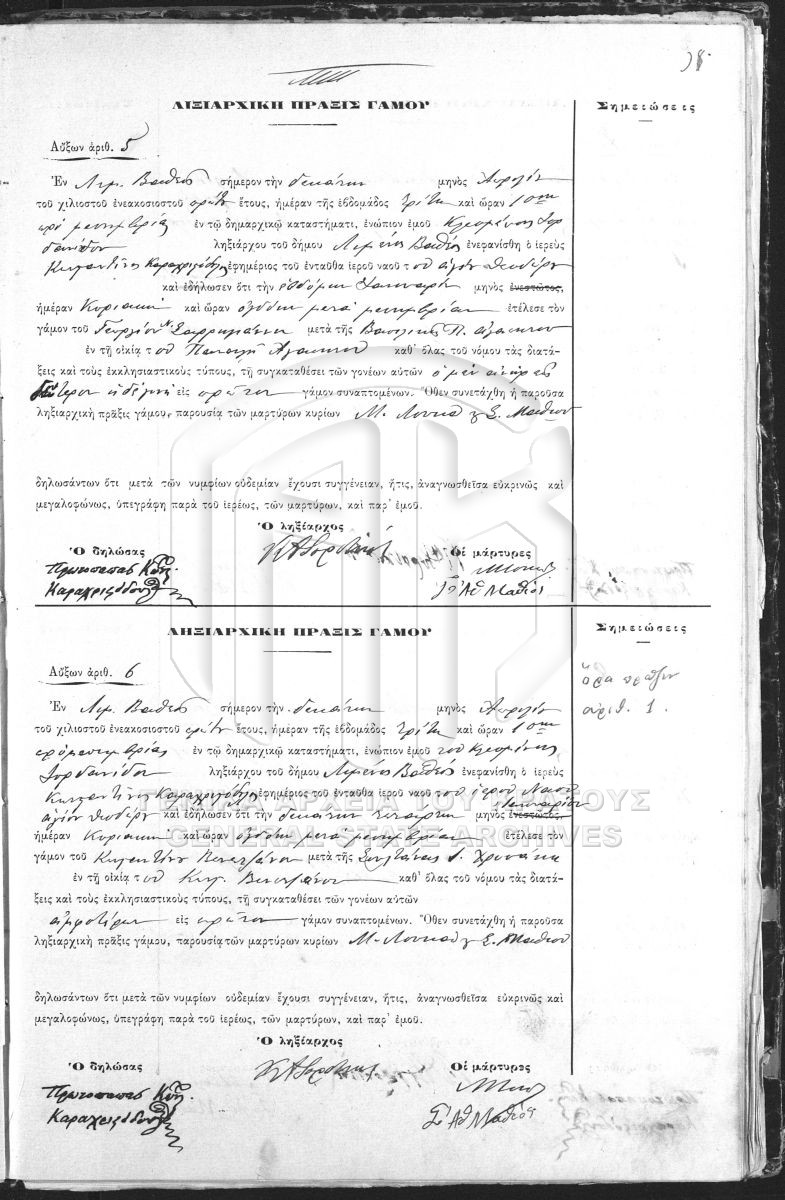 38
ΛΙΞΙΑΡΧΙΚΗ ΠΡΑΞΙΣ ΓΑΜΟΥ
Σημειώσεις
Αὔξων ἀριθ. 5
Ἐν Λιμ. Βαθέος σήμερον τὴν δεκάτην μηνὸς Ἀπριλίου
τοῦ χιλιοστοῦ ἐνεακοσιοστοῦ πρώτου ἔτους, ἡμέραν τῆς ἑβδομάδος Τρίτη καὶ ὥραν
πρὸ μεσημβρίας ἐν τῷ δημαρχικῷ καταστήματι, ἐνώπιον ἐμοῦ Κλεομένους Ιορ
δανίδου ληξιάρχου τοῦ δήμου Λιμένος Βαθέος ἐνεφανίσθη ὁ ἱερεὺς
Κωνσταντῖνος ἐφημέριος τοῦ ἐνταῦθα ἱεροῦ ναοῦ τοῦ ἁγίου
καὶ ἐδήλωσεν ὅτι τὴν ἑβδόμην Ἰανουαρίου μηνὸς ἐνεστῶτος,
ἡμέραν Κυριακὴν καὶ ὥραν ὀγδόην μετὰ μεσημβρίαν ἐτέλεσε τὸν
γάμον τοῦ Γεωργίου μετὰ τῆς Βασιλικῆς Π.
ἐν τῇ οἰκίᾳ τοῦ καθ' ὅλας τοῦ νόμου τὰς διατά-
ξεις καὶ τοὺς ἐκκλησιαστικοὺς τύπους, τῇ συγκαταθέσει τῶν γονέων αὐτῶν ὁ μὲν ἀνὴρ εἰς
δεύτερον ἡ δὲ γυνὴ εἰς πρῶτον γάμον συναπτομένων. Ὅθεν συνετάχθη ἡ παροῦσα
ληξιαρχικὴ πρᾶξις γάμου, παρουσίᾳ τῶν μαρτύρων κυρίων Μ. Λουκᾶ Σ. Μαθιού
δηλωσάντων ὅτι μετὰ τῶν νυμφίων οὐδεμίαν ἔχουσι συγγένειαν, ἥτις, ἀναγνωσθεῖσα εὐκρινῶς καὶ
μεγαλοφώνως, ὑπεγράφη παρὰ τοῦ ἱερέως, τῶν μαρτύρων, καὶ παρ' ἐμοῦ.
Ὁ ληξίαρχος
Ὁ δηλώσας
Οἱ μάρτυρες
Πρωτοπαπας
ΛΗΞΙΑΡΧΙΚΗ ΠΡΑΞΙΣ ΓΑΜΟΥ
Σημειώσεις
Αὔξων ἀριθ. 6
ὅρα πρᾶξιν
ἀριθ. 1.
Ἐν Λιμ. Βαθέος σήμερον τὴν δεκάτην μηνὸς Ἀπριλίου
τοῦ χιλιοστοῦ ἐνεακοσιοστοῦ πρώτου ἔτους, ἡμέραν τῆς ἑβδομάδος Τρίτη καὶ ὥραν
πρὸ μεσημβρίας ἐν τῷ δημαρχικῷ καταστήματι, ἐνώπιον ἐμοῦ τοῦ Κλεομένους
Ιορδανίδου ληξιάρχου τοῦ δήμου Λιμένος Βαθέος ἐνεφανίσθη ὁ ἱερεὺς
Κωνσταντῖνος ἐφημέριος τοῦ ἐνταῦθα ἱεροῦ ναοῦ τοῦ ἱεροῦ Ναοῦ
Ἰανουαρίου
ἁγίου καὶ ἐδήλωσεν ὅτι τὴν δεκάτην τετάρτην μηνὸς ἐνεστῶτος,
ἡμέραν Κυριακὴν καὶ ὥραν ὀγδόην μετὰ μεσημβρίαν ἐτέλεσε τὸν
γάμον τοῦ Κωνσταντίνου μετὰ τῆς Σουλτάνας
ἐν τῇ οἰκίᾳ τοῦ Κων. καθ' ὅλας τοῦ νόμου τὰς διατά-
ξεις καὶ τοὺς ἐκκλησιαστικοὺς τύπους, τῇ συγκαταθέσει τῶν γονέων αὐτῶν
ἀμφοτέρων εἰς πρῶτον γάμον συναπτομένων. Ὅθεν συνετάχθη ἡ παροῦσα
ληξιαρχικὴ πρᾶξις γάμου, παρουσίᾳ τῶν μαρτύρων κυρίων Μ. Λουκᾶ Σ. Μαθιού
δηλωσάντων ὅτι μετὰ τῶν νυμφίων οὐδεμίαν ἔχουσι συγγένειαν, ἥτις, ἀναγνωσθεῖσα εὐκρινῶς καὶ
μεγαλοφώνως, ὑπεγράφη παρὰ τοῦ ἱερέως, τῶν μαρτύρων, καὶ παρ' ἐμοῦ.
Ὁ ληξίαρχος
Ὁ δηλώσας
Οἱ μάρτυρες
Πρωτοπαπας
ΓΕΝΙΚΑ ΑΡΧΕΙΑ ΤΟΥ ΚΡΑΤΟΥΣ
GENERAL STATE ARCHIVES